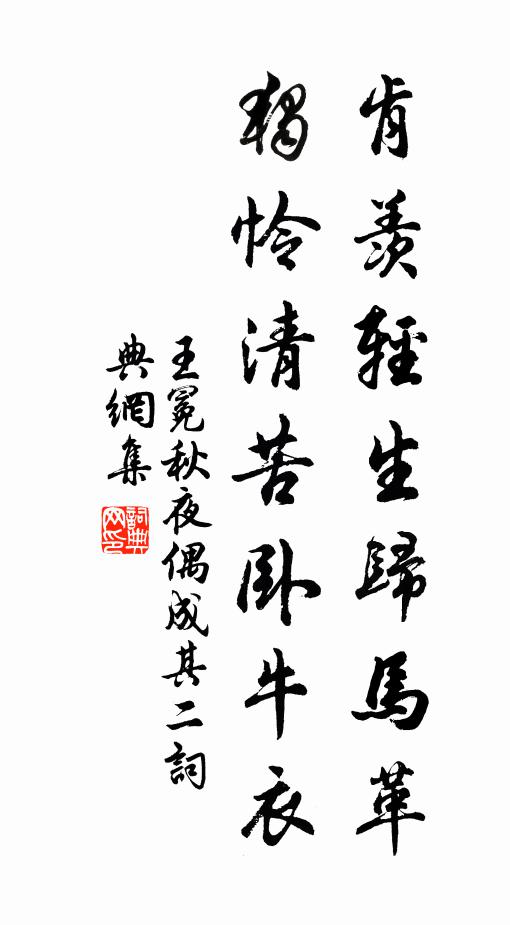 肯羨輕生歸馬革
獨憐清苦臥牛衣
王冕秋夜偶成其二詞
典網集
詞典網印